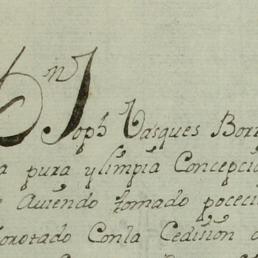 Dn Joph Vasques Borr
a pura ylimpia Concepció
Aviendo tomado poceci
Con la Cedision